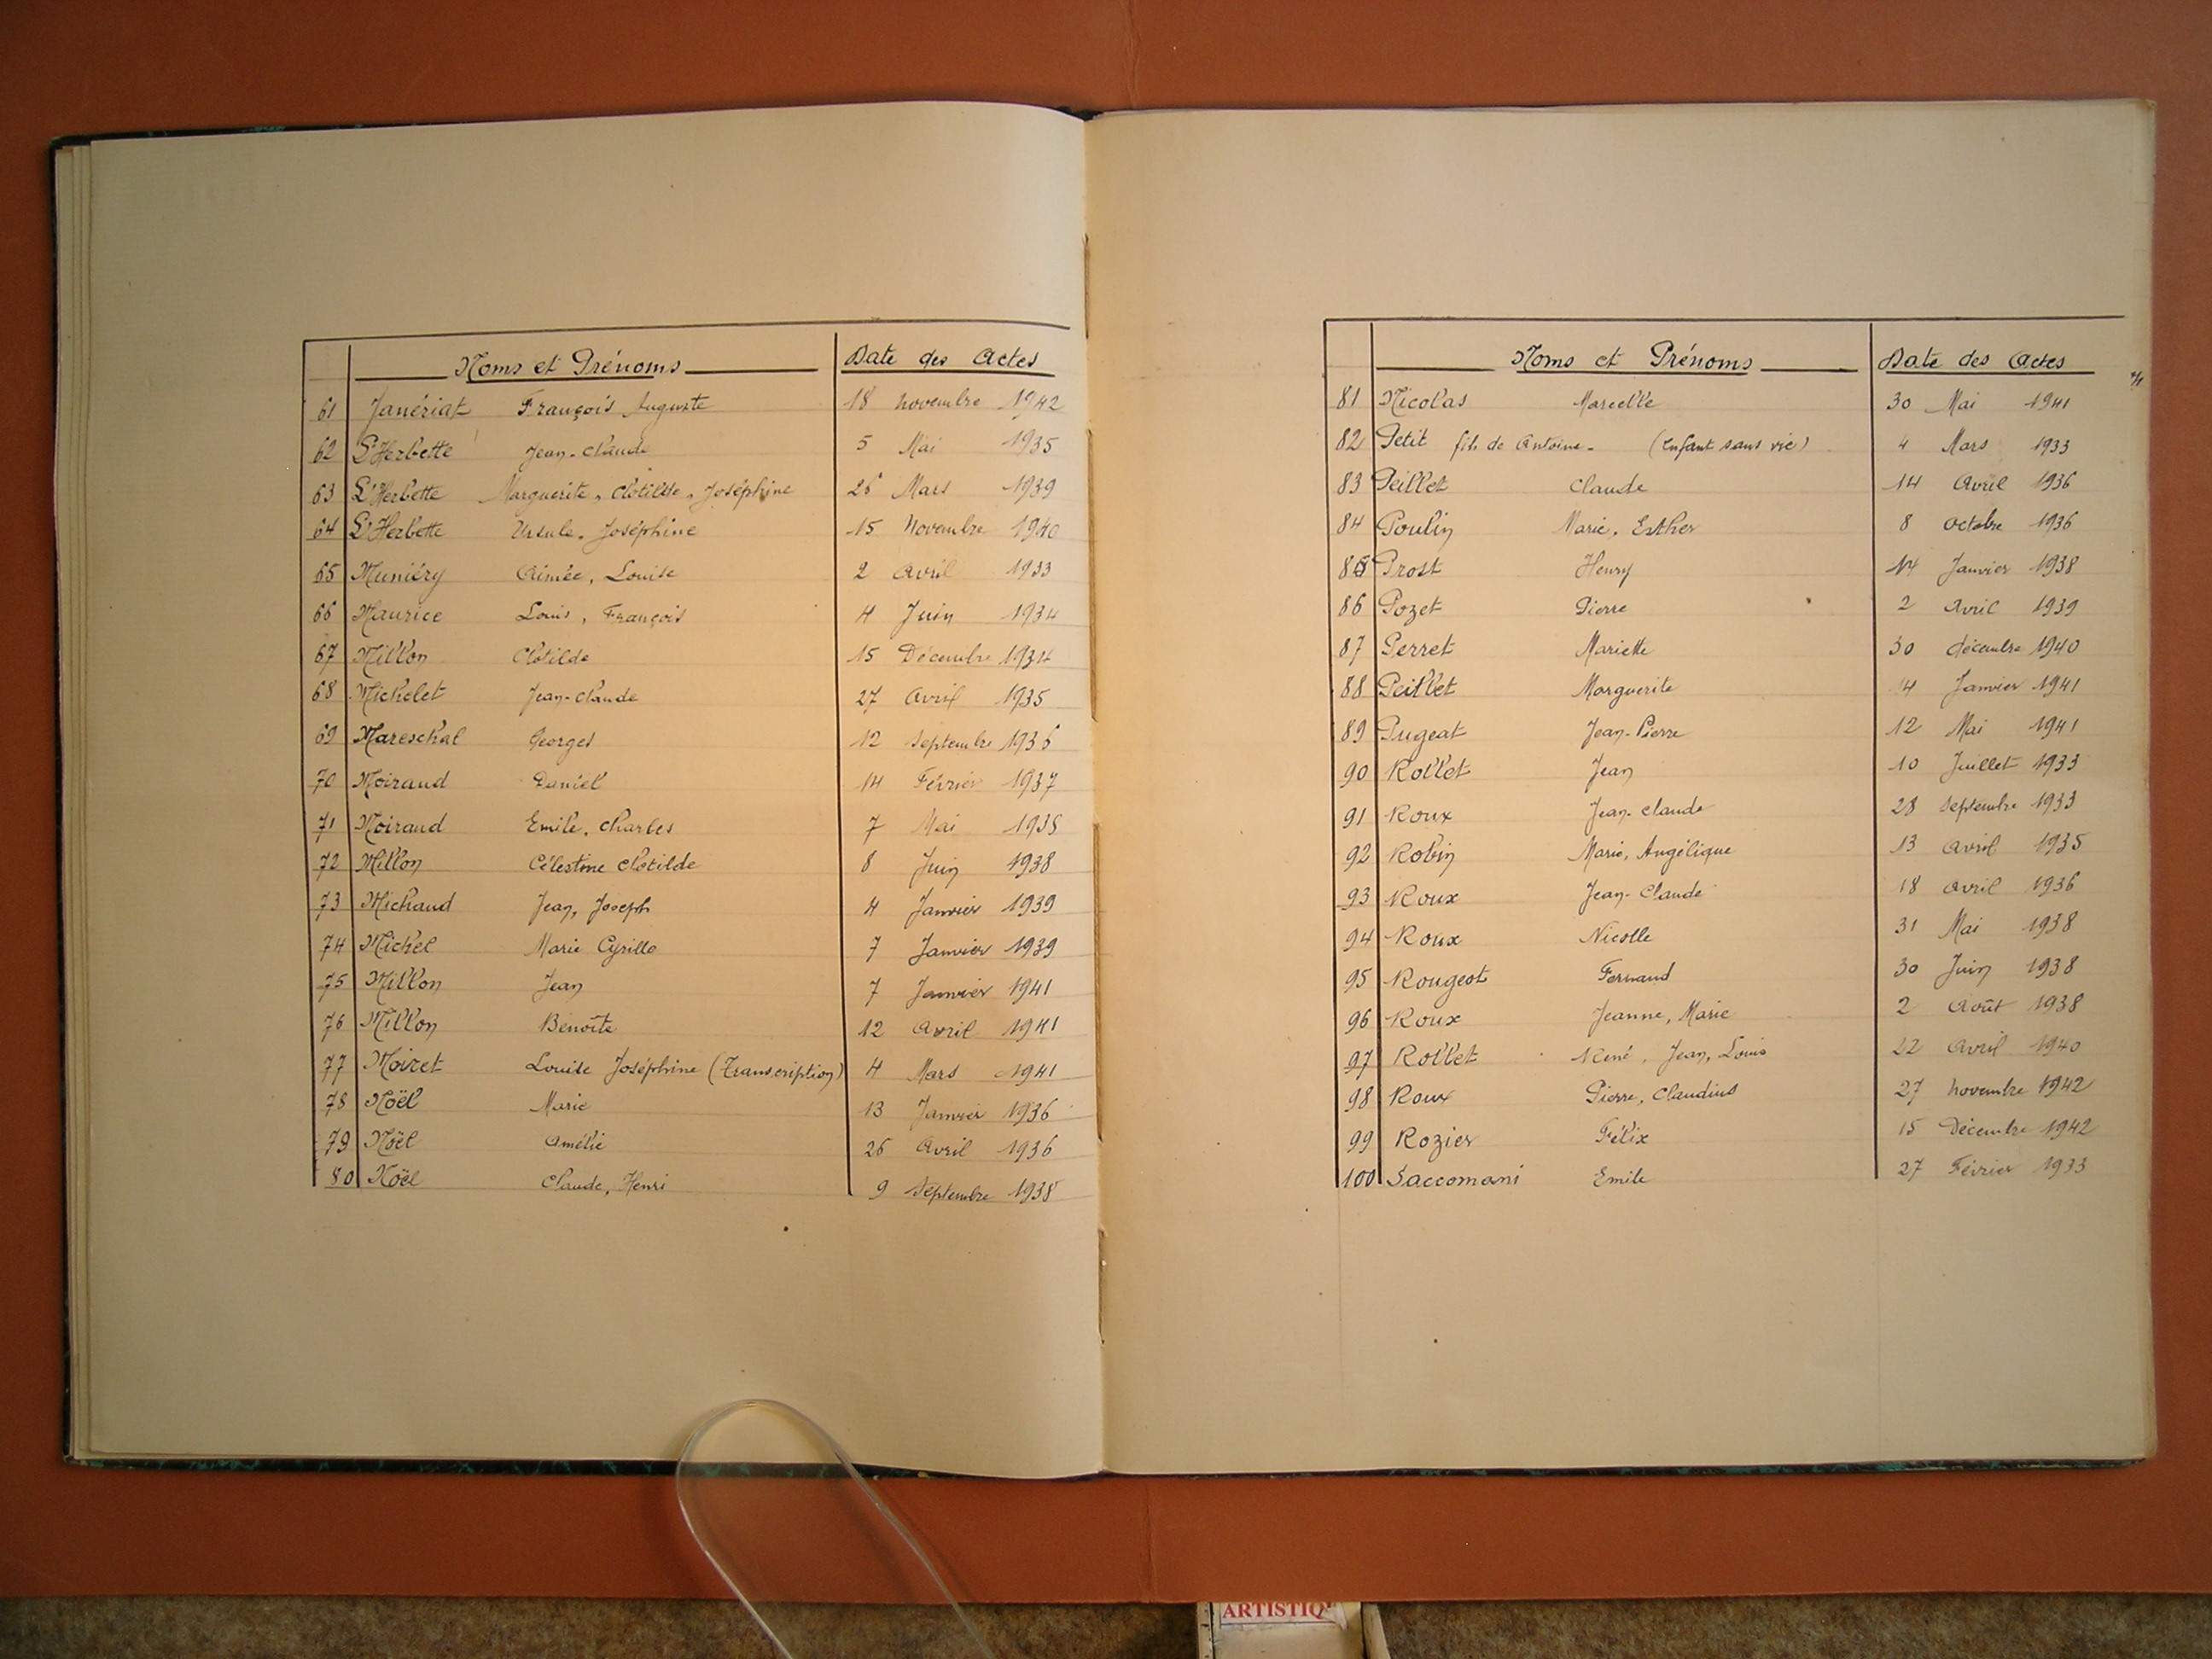 Noms et Prénoms Date des Actes
61 Janériat François Auguste 18 novembre 1942
62 L'Herbette Jean-Claude 5 Mai 1935
63 L'Herbette Marguerite, Clotilde, Joséphine 26 Mars 1939
64 L'Herbette Ursule, Joséphine 15 Novembre 1940
65 Muniéry Aimée, Louise 2 Avril 1933
66 Maurice Louis, François 4 Juin 1934
67 Millon Clotilde 15 Décembre 1934
68 Michelet Jean-Claude 27 Avril 1935
69 Mareschal Georges 12 Septembre 1936
70 Moiraud Daniel 14 Février 1937
71 Moiraud Emile, Charles 7 Mai 1938
72 Millon Célestine Clotilde 8 Juin 1938
73 Michaud Jean, Joseph 4 Janvier 1939
74 Michel Marie Cyrille 7 Janvier 1939
75 Millon Jean 7 Janvier 1941
76 Millon Benoîte 12 Avril 1941
77 Moiret Louise Joséphine (Transcription) 4 Mars 1941
78 Noël Marie 13 Janvier 1936
79 Noël Amélie 26 Avril 1936
80 Noël Claude, Henri 9 Septembre 1938
Noms et Prénoms Date des Actes
81 Nicolas Marcelle 30 Mai 1941
82 Petit fils de Antoine - (Enfant sans vie) 4 Mars 1933
83 Peillet Claude 14 Avril 1936
84 Poulin Marie, Esther 8 Octobre 1936
85 Prost Henry 14 Janvier 1938
86 Pozet Pierre 2 Avril 1939
87 Perret Mariette 30 décembre 1940
88 Peillet Marguerite 4 Janvier 1941
89 Pugeat Jean-Pierre 12 Mai 1941
90 Rollet Jean 10 Juillet 1933
91 Roux Jean-Claude 28 Septembre 1933
92 Robin Marie, Angélique 13 Avril 1935
93 Roux Jean-Claude 18 Avril 1936
94 Roux Nicolle 31 Mai 1938
95 Rougeot Fernand 30 Juin 1938
96 Roux Jeanne, Marie 2 Août 1938
97 Rollet René, Jean, Louis 22 Avril 1940
98 Roux Pierre, Claudius 27 Novembre 1942
99 Rozier Félix 15 Décembre 1942
100 Saccomani Emile 27 Février 1933
ARTISTIQ